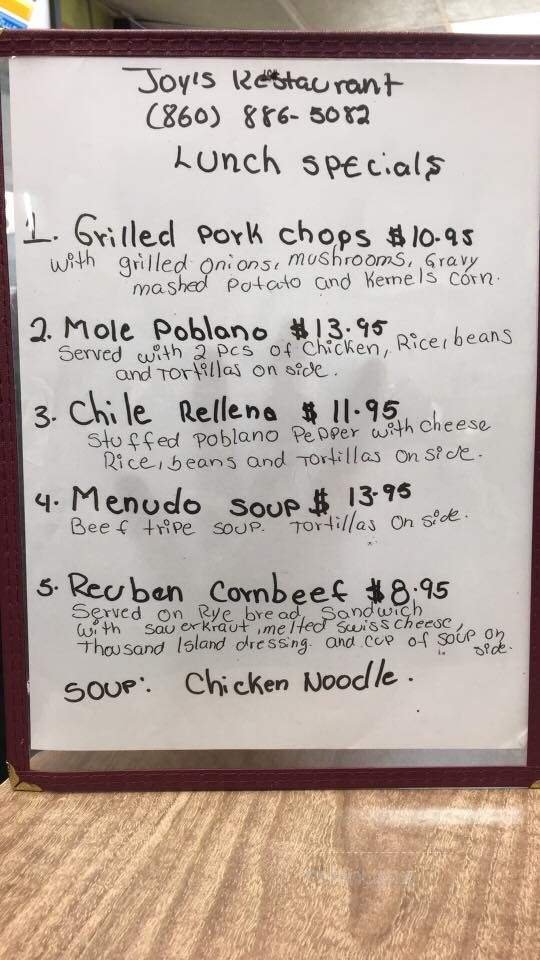 Joy's Restaurant
(860) 886-5082
Lunch specials
1. Grilled Pork chops $10.95
with grilled onions, mushrooms, Gravy
mashed Potato and Kernels corn.
2. Mole Poblano $13.95
Served with 2 pcs of Chicken, Rice, beans
and Tortillas on side.
3. Chile Relleno $11.95
Stuffed Poblano Pepper with cheese
Rice, beans and Tortillas on side.
4. Menudo soup $13.95
Beef tripe soup. Tortillas on side.
5. Reuben Cornbeef $8.95
Served on Rye bread Sandwich
with sauerkraut, melted swiss cheese,
Thousand Island dressing. and cup of soup on
side.
SOUP: Chicken Noodle.